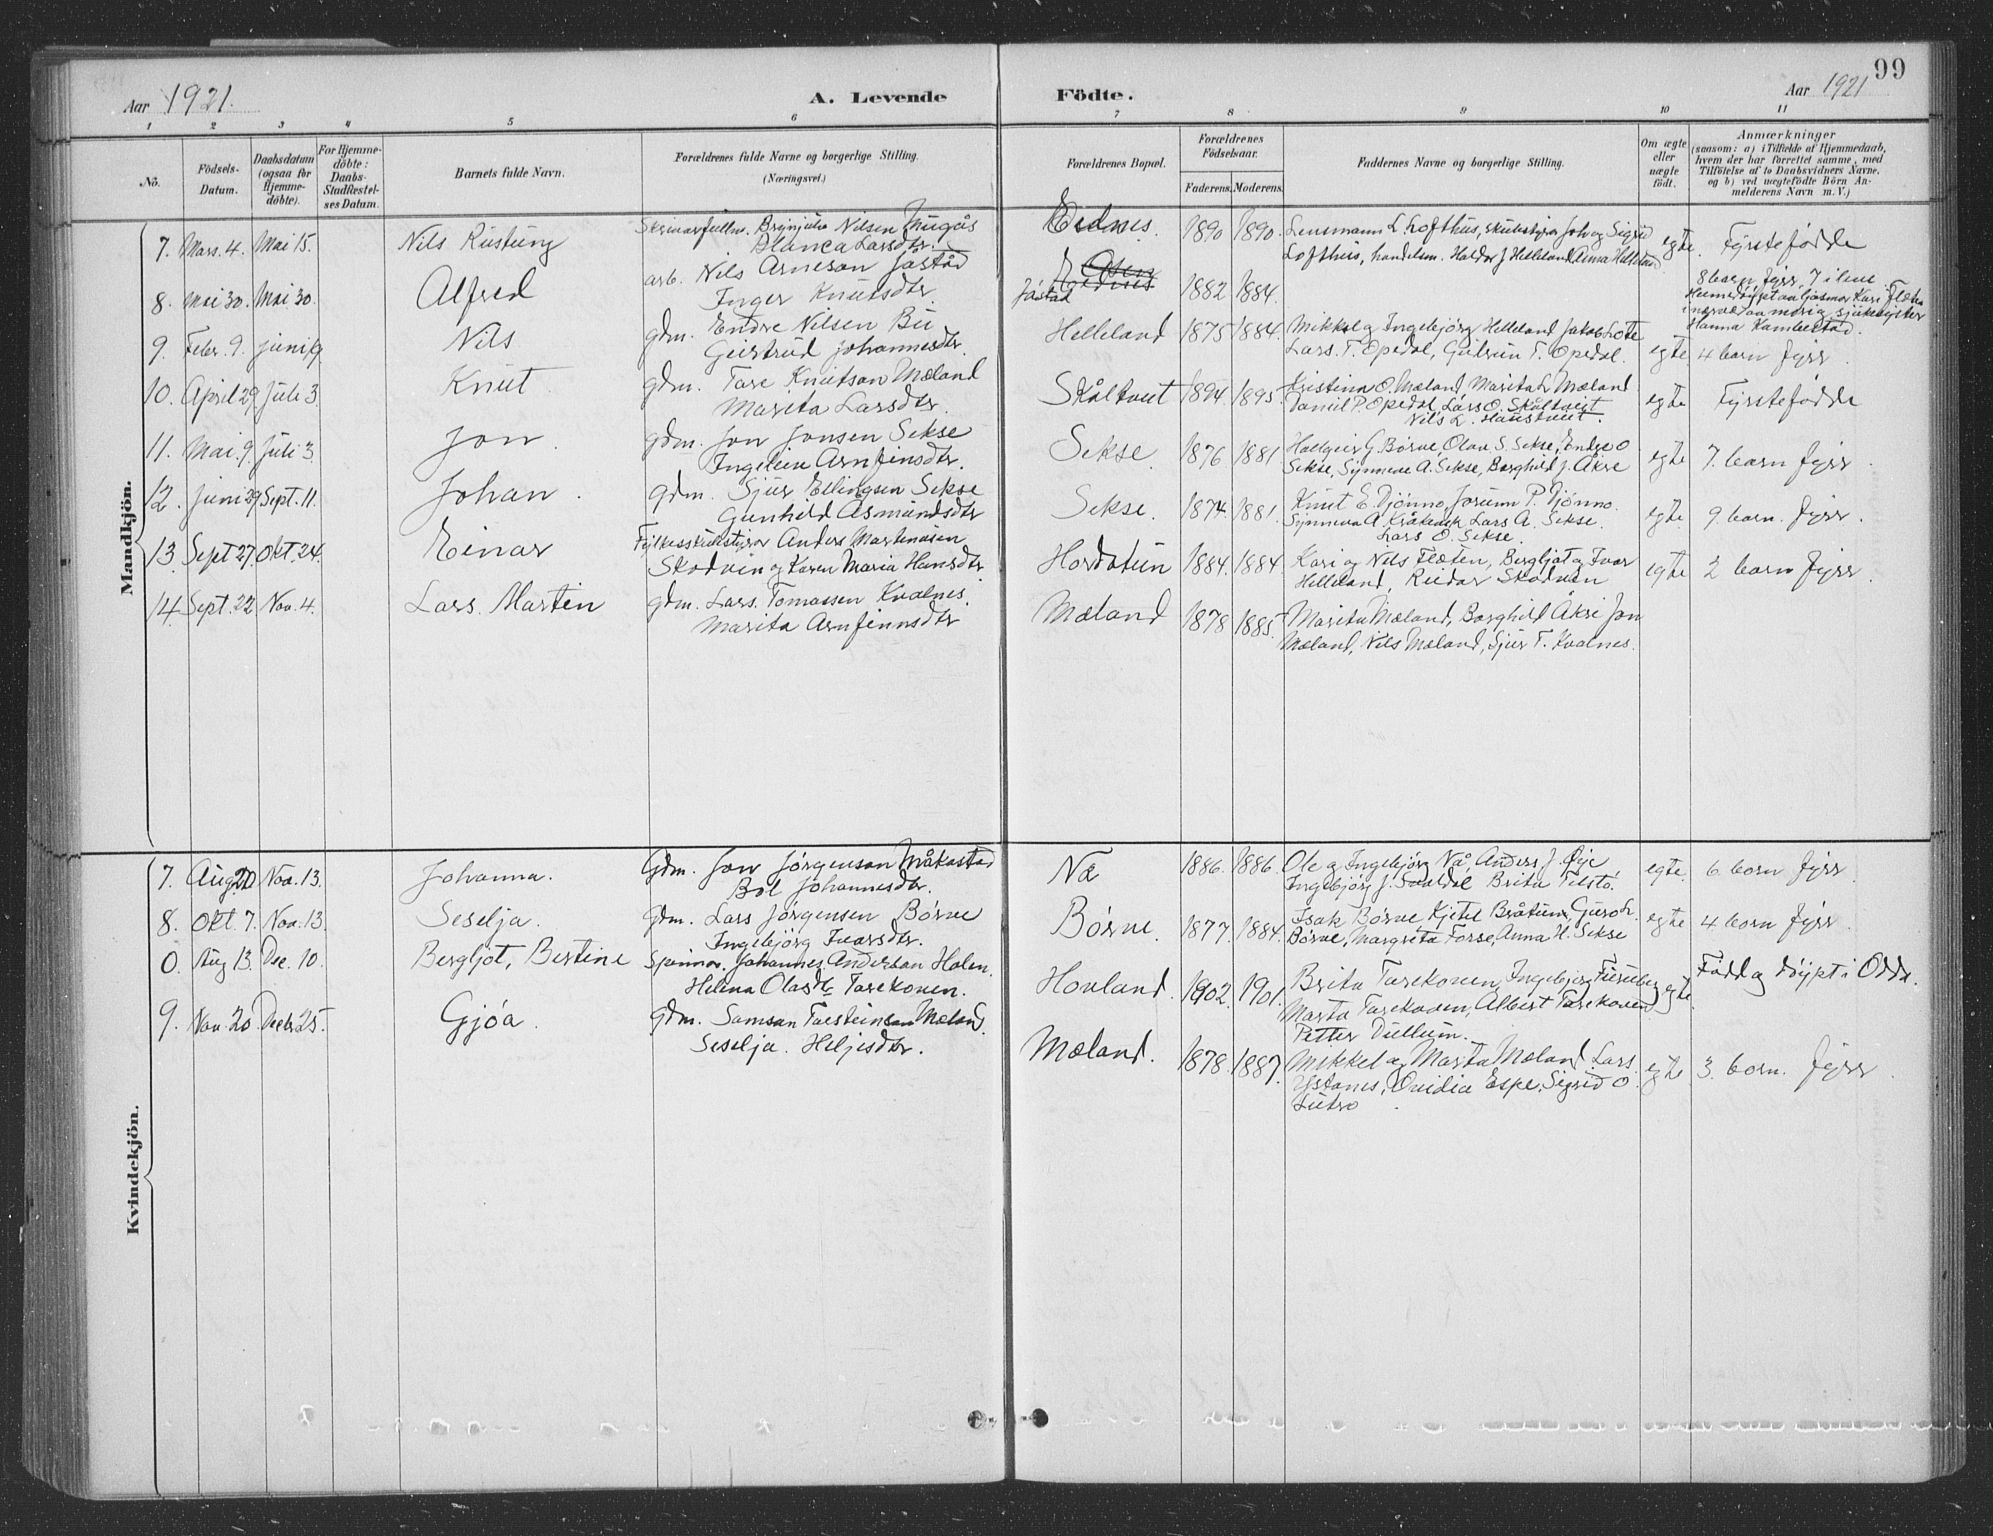 99
Aar 1921.
A. Levende
Födte.
Aar 1921
1 2 3 4 5 6 7 8 9 10 11
No.
Födsels-
Datum.
Daabsdatum
(ogsaa for
Hjemme-
döbte).
For Hjemme-
döbte:
Daabs-
Stadfæstel-
ses Datum.
Barnets fulde Navn.
Forældrenes fulde Navne og borgerlige Stilling.
(Næringsvei.)
Forældrenes Bopæl.
Forældrenes
Födselsaar.
Faderens. Moderens.
Faddernes Navne og borgerlige Stilling.
Om ægte
eller
uægte
födt.
Anmærkninger
(saasom: a) i Tilfælde af Hjemmedaab,
hvem der har forrettet samme, med
Tilföielse af to Daabsvidners Navne,
og b) ved uægtefödte Börn An-
melderens Navn m. V.)
Mandkjön.
7. Mars. 4. Mai 15. Nils Rustung
Brynjulv Nilsen
Blanca Larsdtr.
Eidnes. 1890 1890.
Lensmann L. Lofthus, Joh og Sigrid
Lofthus, handelsm. Haldor J Helleland, Anna Helleland
egte. Fyrstefødde
8. Mai 30. Mai 30. Alfred
arb. Nils Arneson Jåstad
Inger Knutsdtr.
Jåstad 1882 1884.
8 born fyrr, 7 i live.
Hanna Kambestad.
9. Febr. 9. Juni 19 Nils
gdm. Endre Nilsen Bu
Geirtrud Johannesdtr.
Helleland 1875 1884.
Mikkel og Ingebjørg Helleland, Jakob Lote
Lars. T. Opedal, Gudrun T. Opedal.
egte 4 born fyrr.
10. April 29 Juli 3 Knut
gdm. Tore Knutson Mæland
Marita Larsdtr.
Skåltveit 1894. 1895.
Kristina O. Mæland, Marita L. Mæland
Daniel P. Opedal, Lars O. Skåltveit
Nils L. Haustveit
egte Fyrstefødde
11. Mai. 9. Juli 3. Jon.
gdm. Jon Jonsen Sekse
Ingelein Arnfinsdtr.
Sekse. 1876 1881
Hallgeir G. Børve, Olav S. Sekse, Endre O
Sekse, Synneve A. Sekse, Borghild J. Åkre
egte 7. born fyrr.
12. Juni 29 Sept. 11. Johan.
gdm. Sjur Ellingsen Sekse
Gunhild Asmundsdtr
Sekse. 1874. 1881.
Knut E. Djønno, Jorunn P. Djønno.
Synneva A. Lars A. Sekse.
Lars O. Sekse.
egte 9. born. fyrr.
13. Sept. 27. Okt. 24. Einar
Anders Martinusen
Skodvin og Karen Maria Hansdtr.
Hordatun 1884. 1884
Kari og Nils Flæten, Bergljot og Ivar
Helleland, Reidar Skodvin
egte 2 born fyrr.
14. Sept. 22 Nov. 4. Lars Martin
gdm. Lars Tomassen Kvalnes.
Marita Arnfinnsdtr
Mæland 1878 1885.
Marita Mæland, Borghild Åkre Jon
Mæland, Nils Mæland, Sjur T. Kvalnes.
Kvindekjön.
7. Aug 20 Nov. 13. Johanna.
Gdm. Jon Jørgenson Måkastad
Bol Johannesdtr.
Nå 1886. 1886.
Ole og Ingebjørg Nå, Anders J. Øye
Ingebjørg J. Brita
egte. 6 born fyrr.
8. Okt. 7. Nov. 13 Seselja.
Gdm. Lars Jørgensen Børve
Ingebjørg Ivarsdtr.
Børve. 1877. 1884.
Isak Børve, Kjetil Bråtun, Guro L.
Børve, Margreta Forse, Anna H. Sekse
egte 4 born fyrr.
0. Aug 13. Dec. 10. Bergljot, Bertine
Johannes Anderson Holen.
Helena Olasdtr Tarekonen.
Hovland. 1902 1901.
Brita Tarekonen, Ingebjørg
Marta Tarekonen, Albert Tarekonen
Petter Dullum.
egte. Fødd og døypt i Odda.
9. Nov. 20 Decbr 25. Gjøa.
gdm. Samson Torsteinson Mæland.
Seselja. Heljesdtr.
Mæland. 1878. 1887.
Mikkel og Marta Mæland, Lars
Ystanes, Ovidia Espe, Sigrid O.
Lutro.
egte 3. born. fyrr.